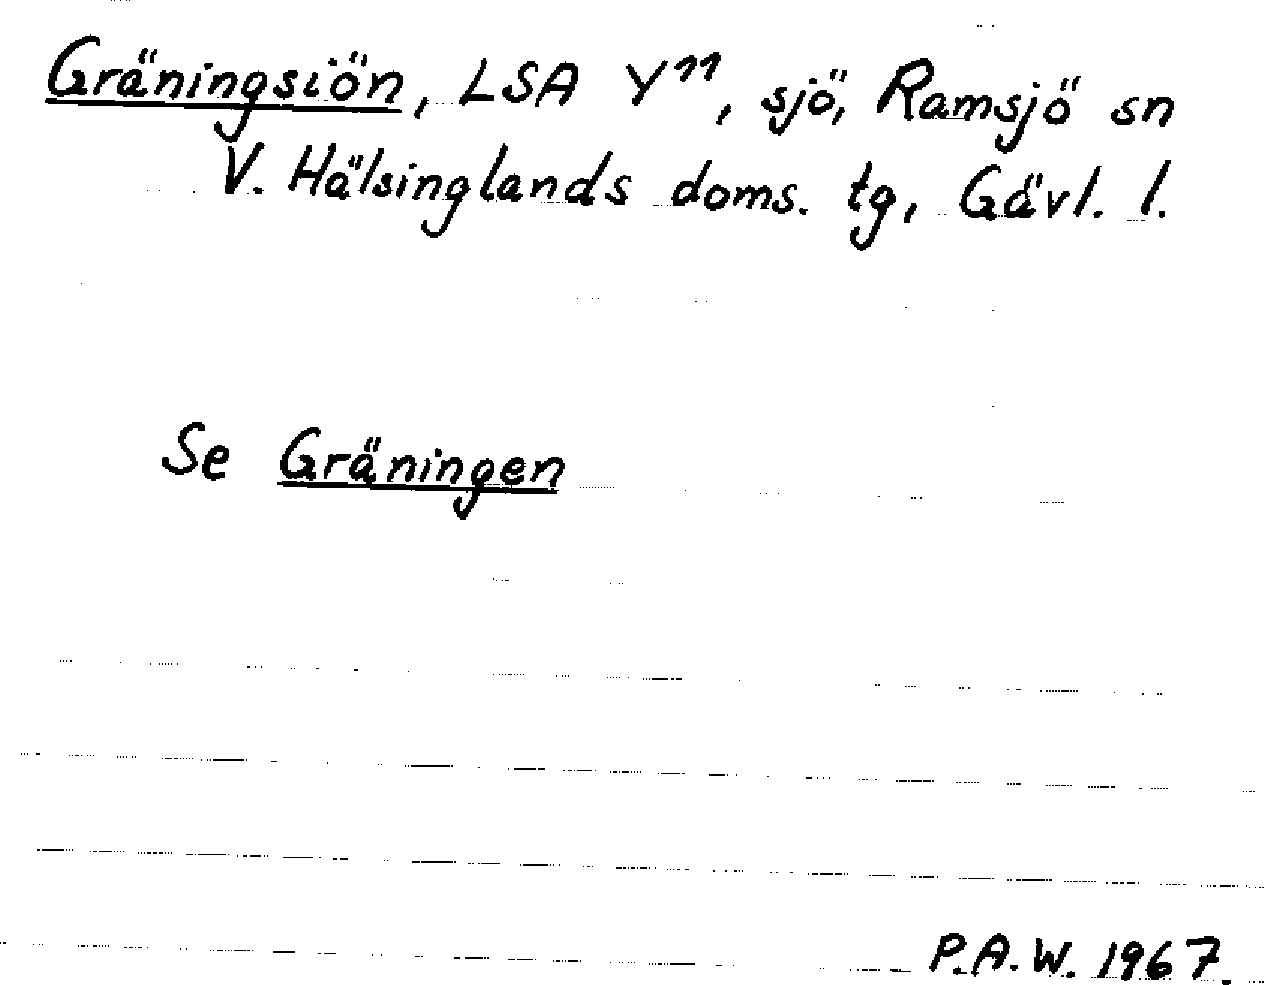 Gräningsiön, LSA Y¹¹, sjö, Ramsjö sn
V. Hälsinglands doms. tg, Gävl. l.
Se Gräningen
P.A.W. 1967.